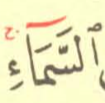 ج
ٱلسَّمَآءِ